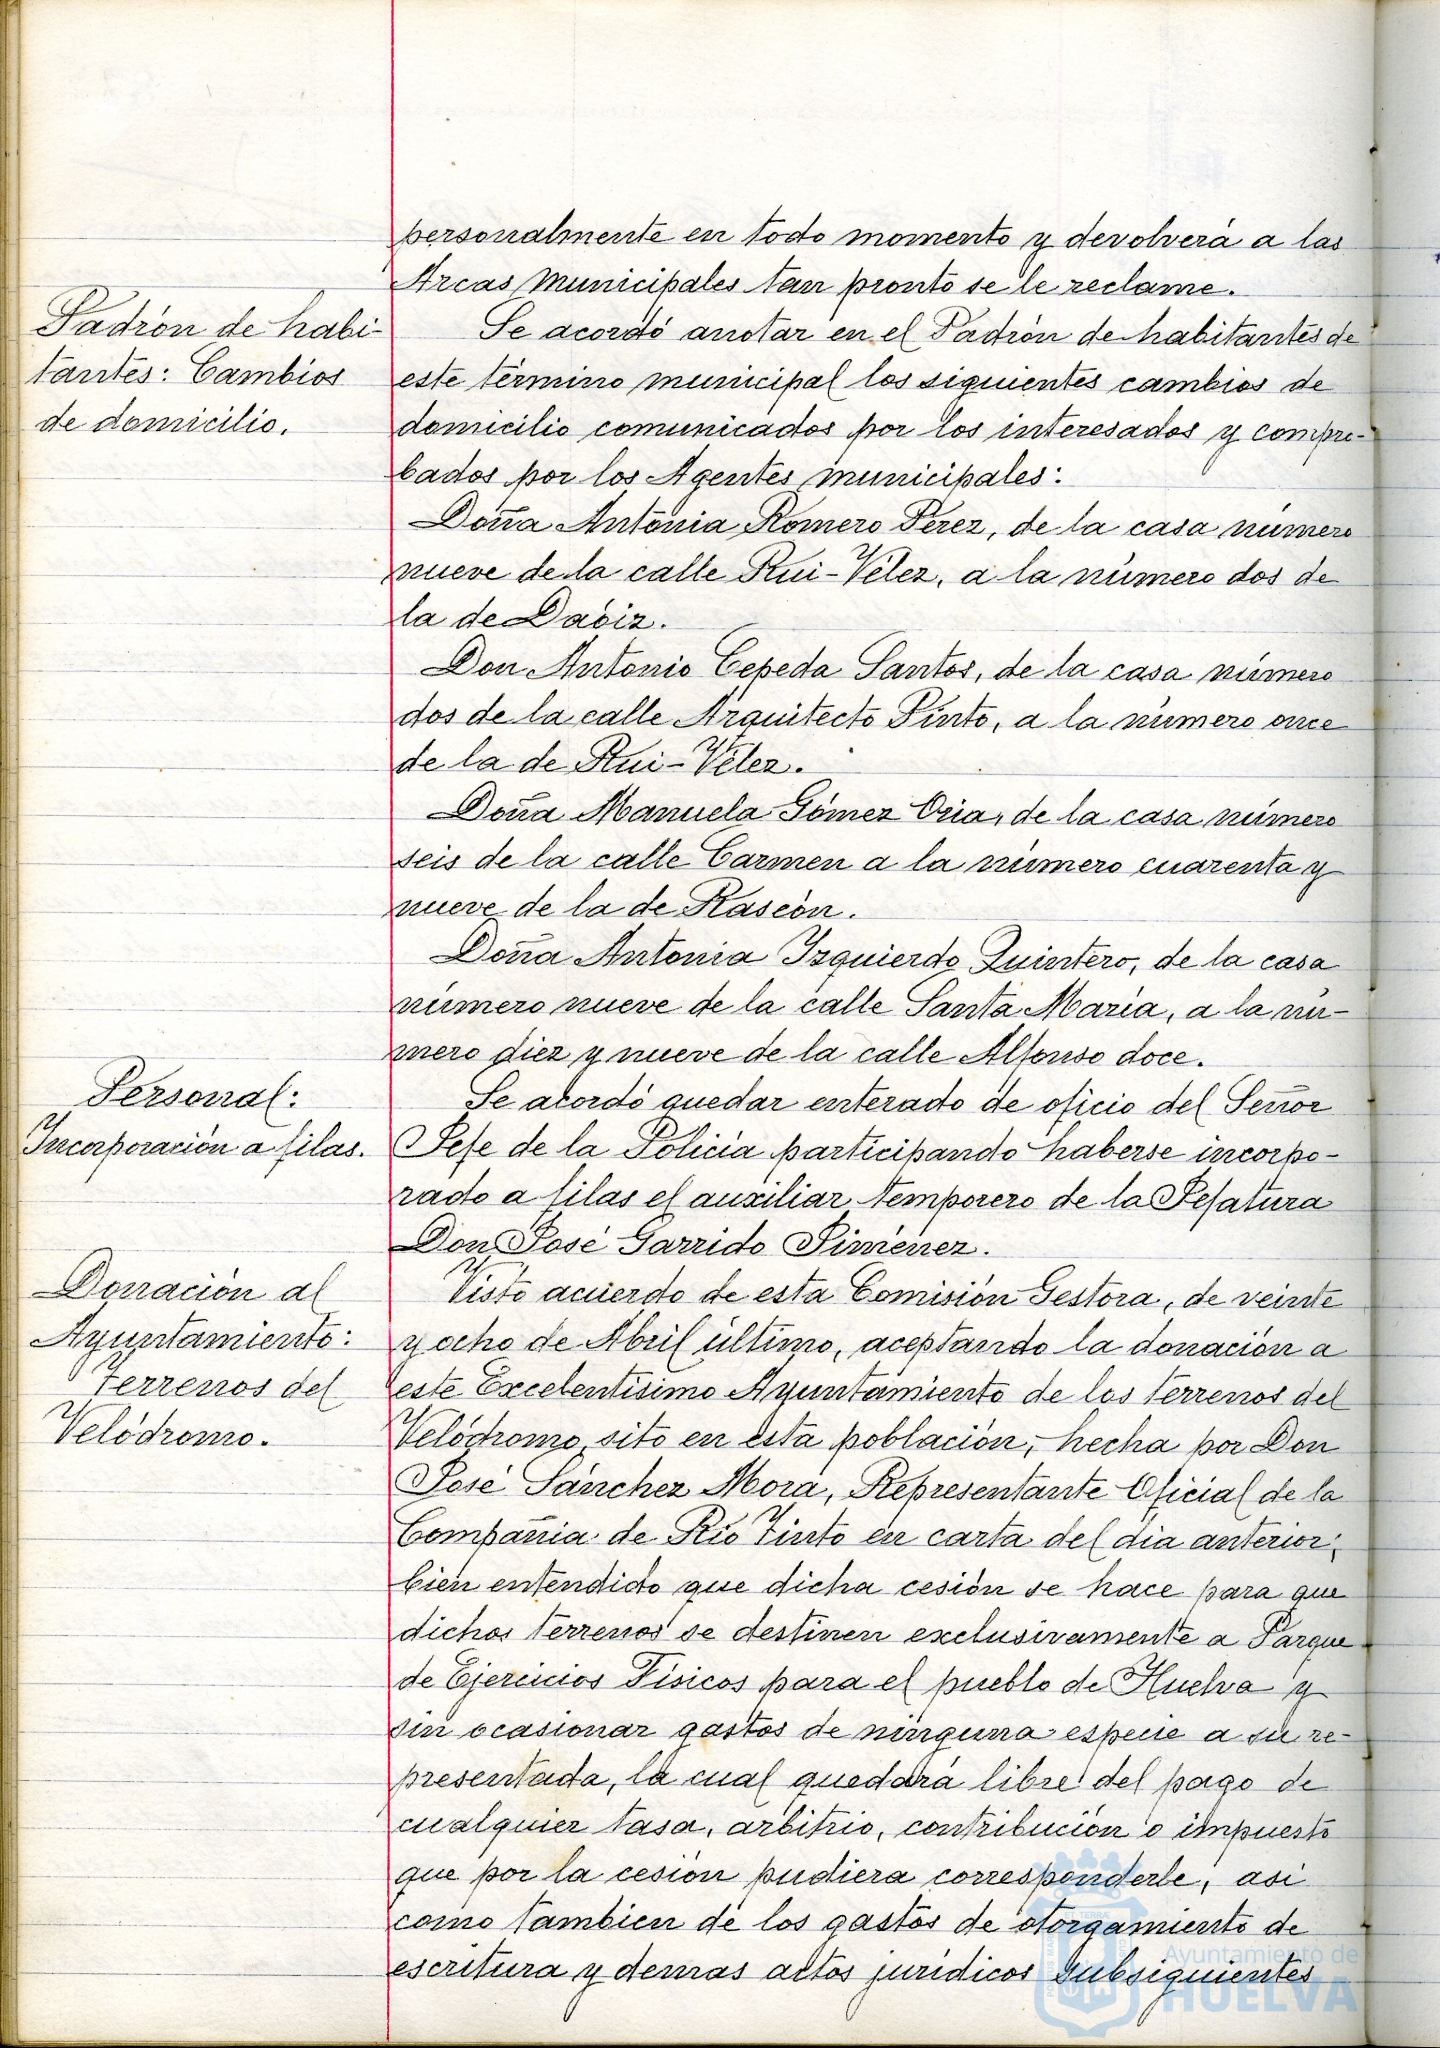 personalmente en todo momento y devolverá a las
Arcas Municipales tan pronto se le reclame.
Padrón de habi-
tantes: Cambios
de domicilio.
Se acordó anotar en el Padrón de habitantes de
este término municipal los siguientes cambios de
domicilio comunicados por los interesados y compro-
bados por los Agentes municipales:
Doña Antonia Romero Pérez, de la casa número
nueve de la calle Rui-Vélez, a la número dos de
la de Daoiz.
Don Antonio Cepeda Santos, de la casa número
dos de la calle Arquitecto Pinto, a la número once
de la de Rui-Vélez.
Doña Manuela Gómez Oria, de la casa número
seis de la calle Carmen a la número cuarenta y
nueve de la de Rascón.
Doña Antonia Izquierdo Quintero, de la casa
número nueve de la calle Santa María, a la nú-
mero diez y nueve de la calle Alfonso doce.
Personal:
Incorporación a filas.
Se acordó quedar enterado de oficio del Señor
Jefe de la Policía participando haberse incorpo-
rado a filas el auxiliar temporero de la Jefatura
Don José Garrido Jiménez.
Donación al
Ayuntamiento:
Terrenos del
Velódromo.
Visto acuerdo de esta Comisión Gestora, de veinte
y ocho de Abril último, aceptando la donación a
este Excelentísimo Ayuntamiento de los terrenos del
Velódromo, sito en esta población, hecha por Don
José Sánchez Mora, Representante Oficial de la
Compañia de Rio Tinto en carta del dia anterior,
bien entendido que dicha cesión se hace para que
dichos terrenos se destinen exclusivamente a Parque
de Ejercicios Físicos para el pueblo de Huelva y
sin ocasionar gastos de ninguna especie a su re-
presentada, la cual quedará libre del pago de
cualquier tasa, arbitrio, contribución o impuesto
que por la cesión pudiera corresponderle, asi
como tambien de los gastos de otorgamiento de
escritura y demas actos jurídicos subsiguientes
Ayuntamiento de
HUELVA